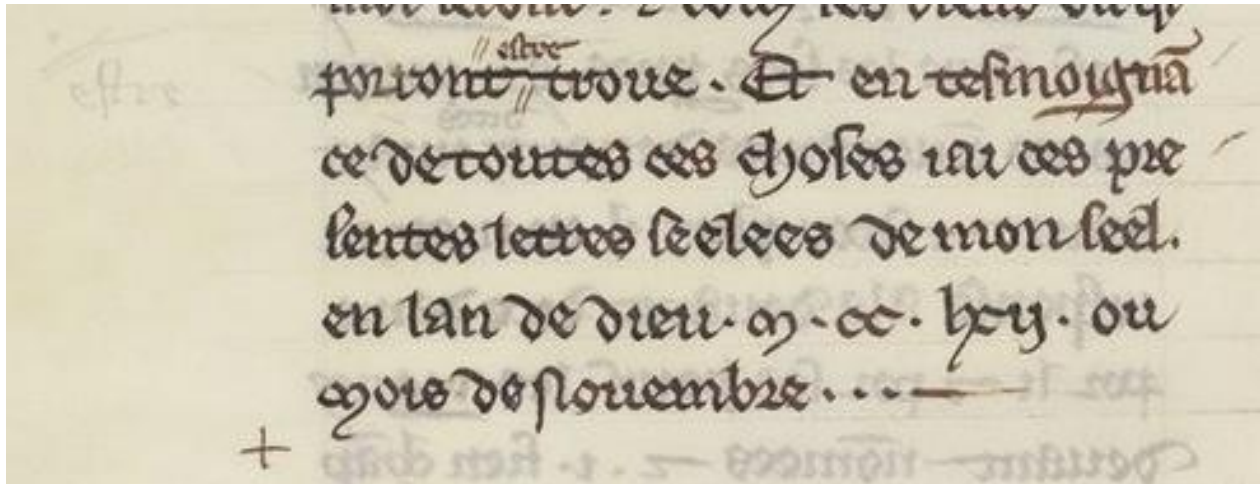 porront estre troue . Et en tesmoignā
ce de toutes ces choses iai ces pre
sentes letres seelees de mon seel .
en lan de dieu . m . cc . lxij . ou
mois de nouembre . . .